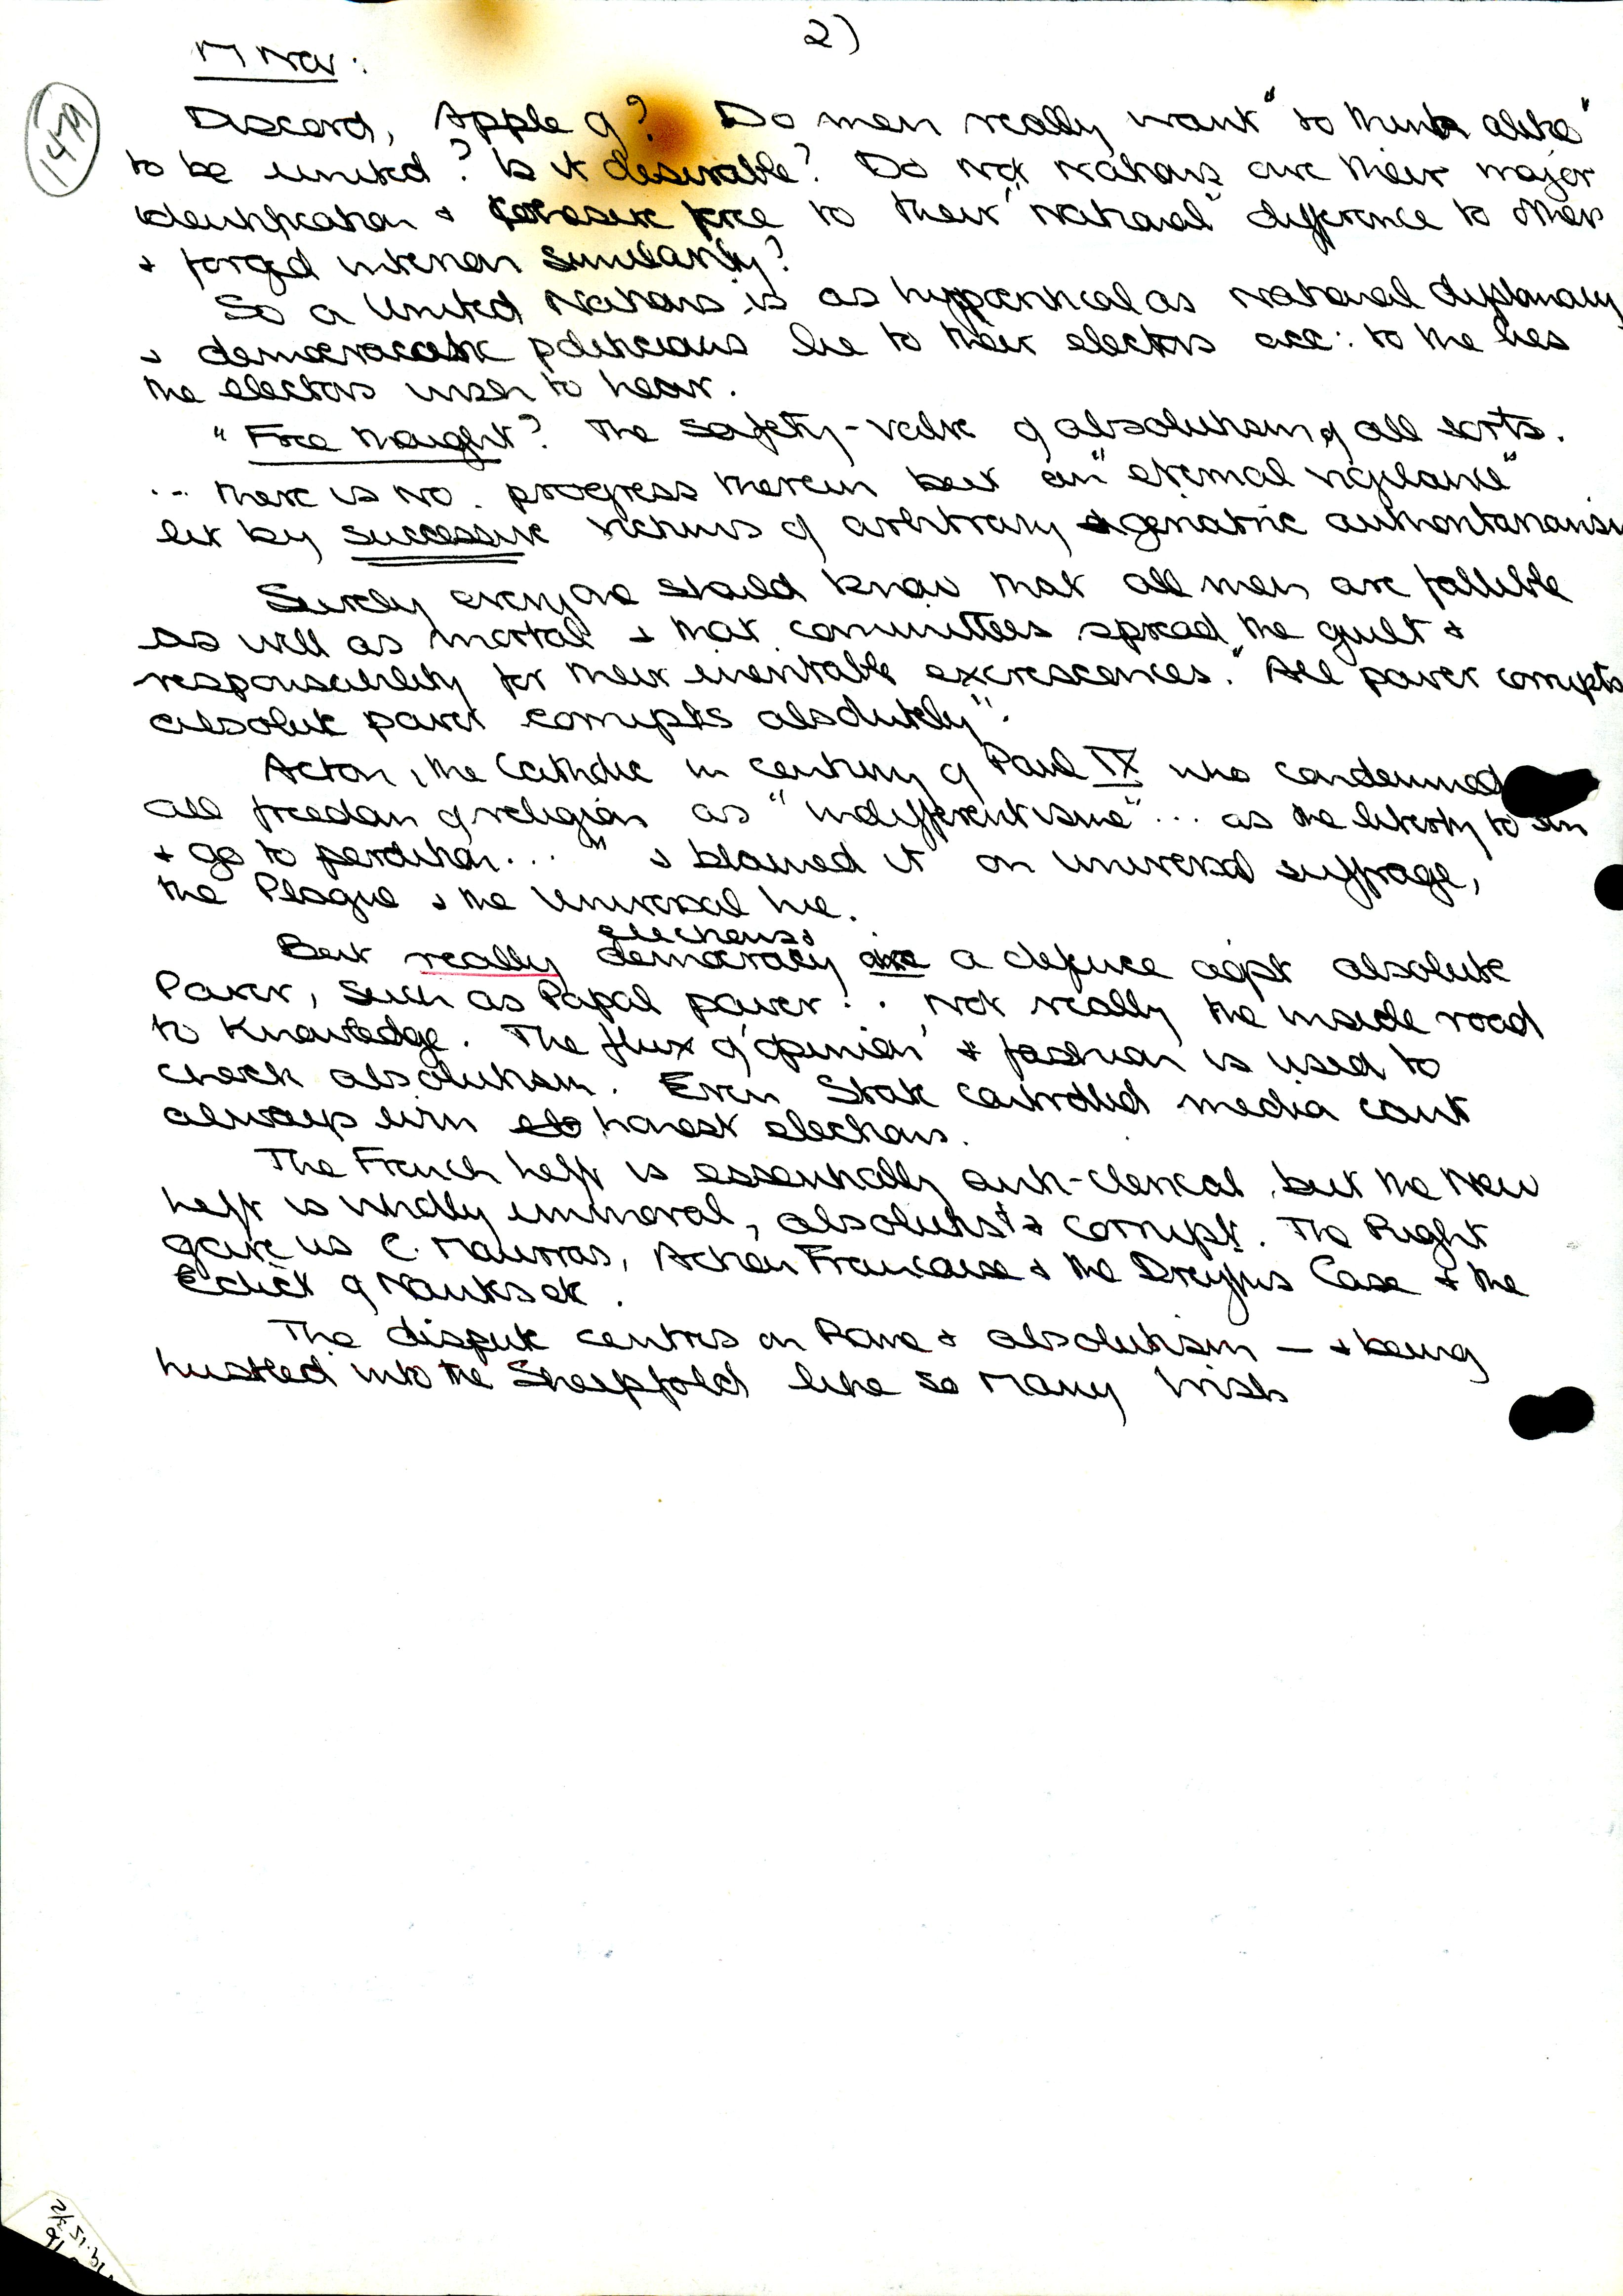 2)
17 Nov:
1479
Discord, Apple of? Do men really want "to think alike"
to be united? Is it desirable? Do not nations owe their major
identification & cohesive force to their "national" difference to others
& forged internal similarity?
So a United Nations is as hypocritical as national diplomacy
& democratic politicians lie to their electors acc: to the lies
the electors wish to hear.
"Free thought? The safety-valve of absolutism of all sorts.
... there is no progress therein but an "eternal vigilance"
lit by successive victims of arbitrary geriatric authoritarianism
Surely everyone should know that all men are fallible
as well as mortal & that committees spread the guilt &
responsability for their inevitable excrescences. "All power corrupts
absolute power corrupts absolutely".
Acton, the Catholic in century of Paul IX who condemned
all freedom of religion as "indifferentisme"... as the liberty to sin
& go to perdition..." & blamed it on universal suffrage,
the Plague & the Universal Lie.
elections &
But really democracy are a defence agst absolute
Power, such as Papal power... not really the inside road
to Knowledge. The flux of 'opinion' & fashion is used to
check absolutism. Even State controlled media cant
always win honest elections.
The French Left is essentially anti-clerical, but the New
Left is wholly immoral, absolutist & corrupt. The Right
gave us C. Maurras, Action Francaise & the Dreyfus Case & the
Edict of Nantes etc.
The dispute centres on Rome & absolutism — & being
hustled into the Sheepfold like so many Irish